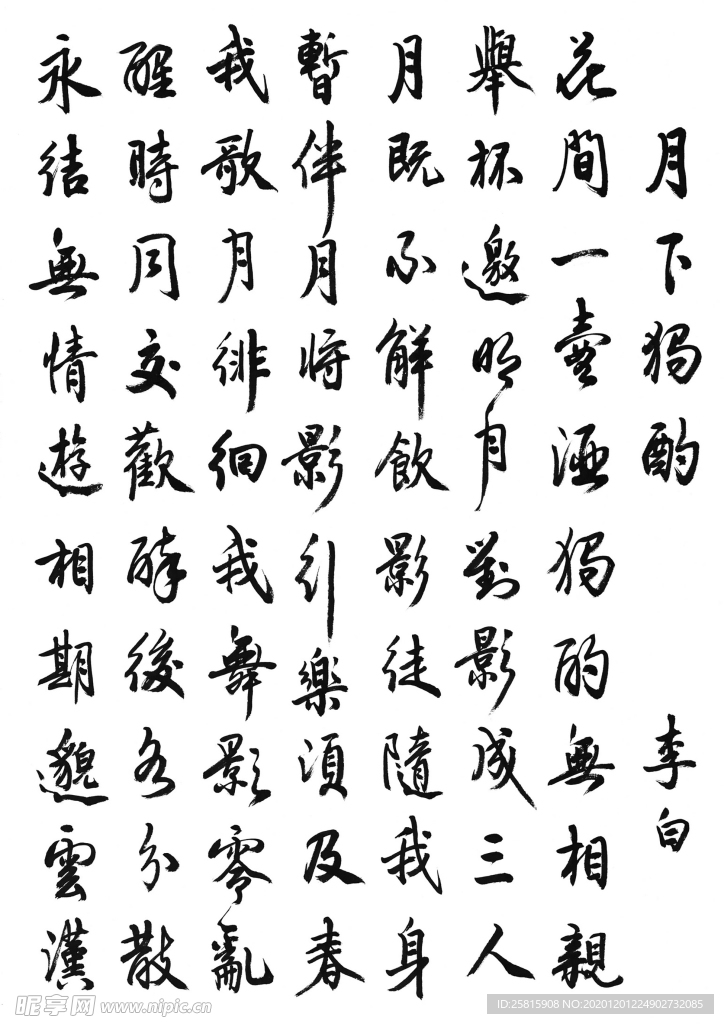 月下獨酌 李白
花間一壺酒獨酌無相親
舉杯邀明月對影成三人
月既不解飲影徒隨我身
暫伴月將影行樂須及春
我歌月徘徊我舞影零亂
醒時同交歡醉後各分散
永結無情遊相期邈雲漢
昵享网 www.nipic.cn
ID:25815908 NO:20201201224902732085